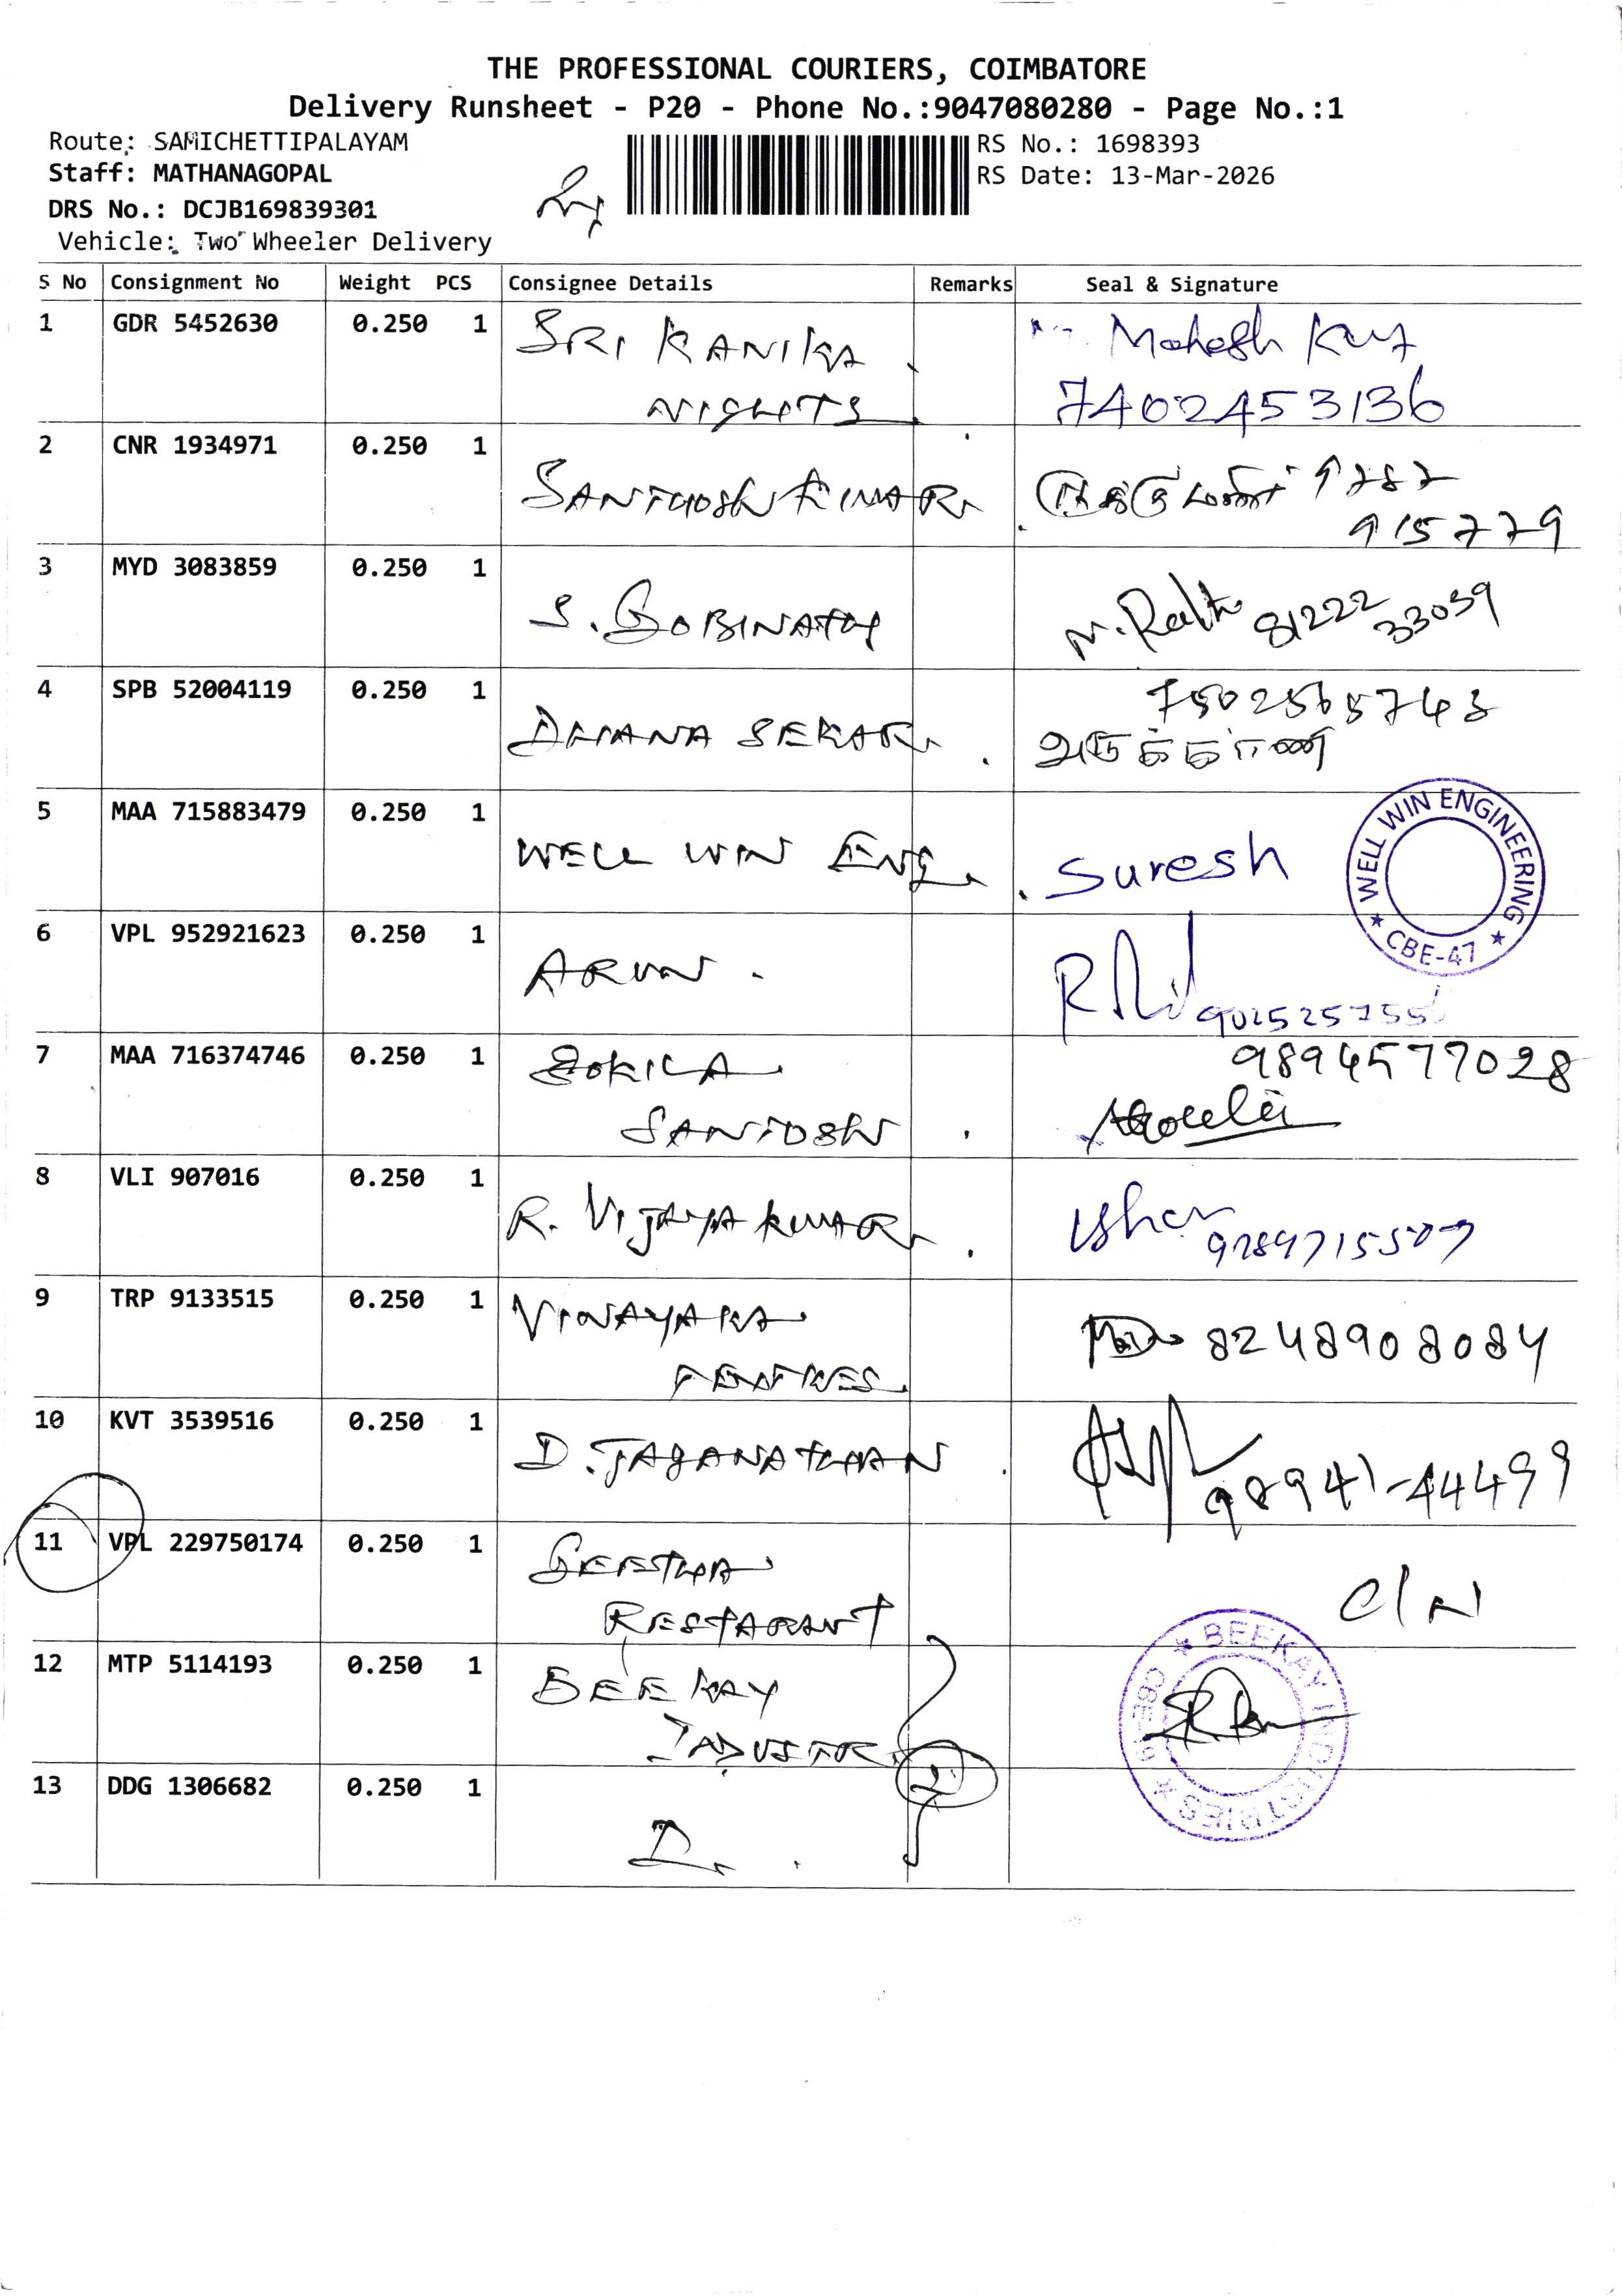 THE PROFESSIONAL COURIERS, COIMBATORE
Delivery Runsheet - P20 - Phone No.:9047080280 - Page No.:1
Route: SAMICHETTIPALAYAM
Staff: MATHANAGOPAL
DRS No.: DCJB169839301
Vehicle: Two Wheeler Delivery
RS No.: 1698393
RS Date: 13-Mar-2026
S No Consignment No Weight PCS Consignee Details Remarks Seal & Signature
1 GDR 5452630 0.250 1 SRI KANIKA Mahesh
NIGHTS 7402453136
2 CNR 1934971 0.250 1
SANTHOSH KUMAR 9787
915779
3 MYD 3083859 0.250 1
S. GOBINATH 81222 33059
4 SPB 52004119 0.250 1
DHANA SEKAR
அருக்காணி
5 MAA 715883479 0.250 1
WELL WIN ENG Suresh
WELL WIN ENGINEERING
CBE-47
6 VPL 952921623 0.250 1
ARUN
7 MAA 716374746 0.250 1 9894577028
KOKILA
SANTOSH
8 VLI 907016 0.250 1
R. VIJAYAKUMAR
9 TRP 9133515 0.250 1 VINAYAKA
8248908084
10 KVT 3539516 0.250 1
D. JAGANATHAN 98941-44499
11 VPL 229750174 0.250 1 GEETHA
RESTARANT C/N
12 MTP 5114193 0.250 1 BEEKAY
BEEKAY INDUSTRIES
13 DDG 1306682 0.250 1
D.